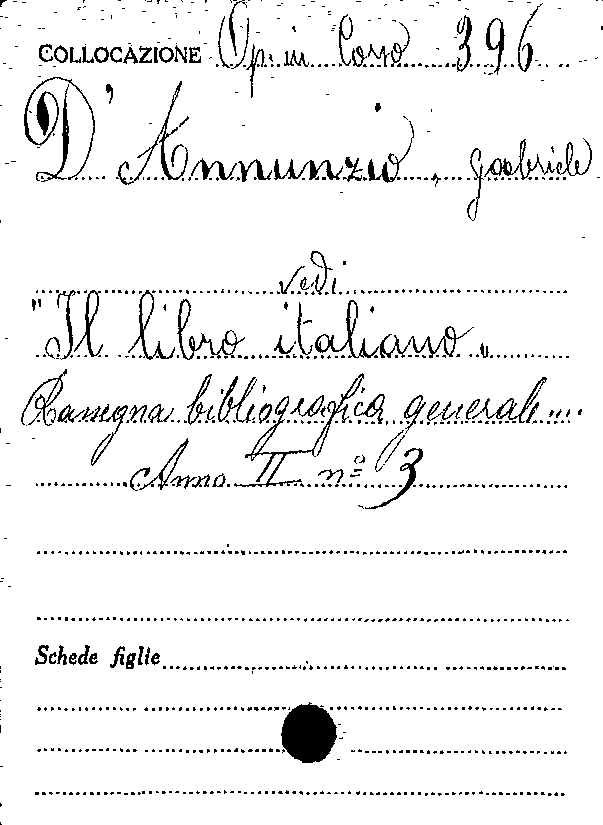 COLLOCAZIONE Op. in Corso 396
D'Annunzio, Gabriele
vedi
"Il libro italiano„
Rassegna bibliografica generale....
Anno II nº 3
Schede figlie